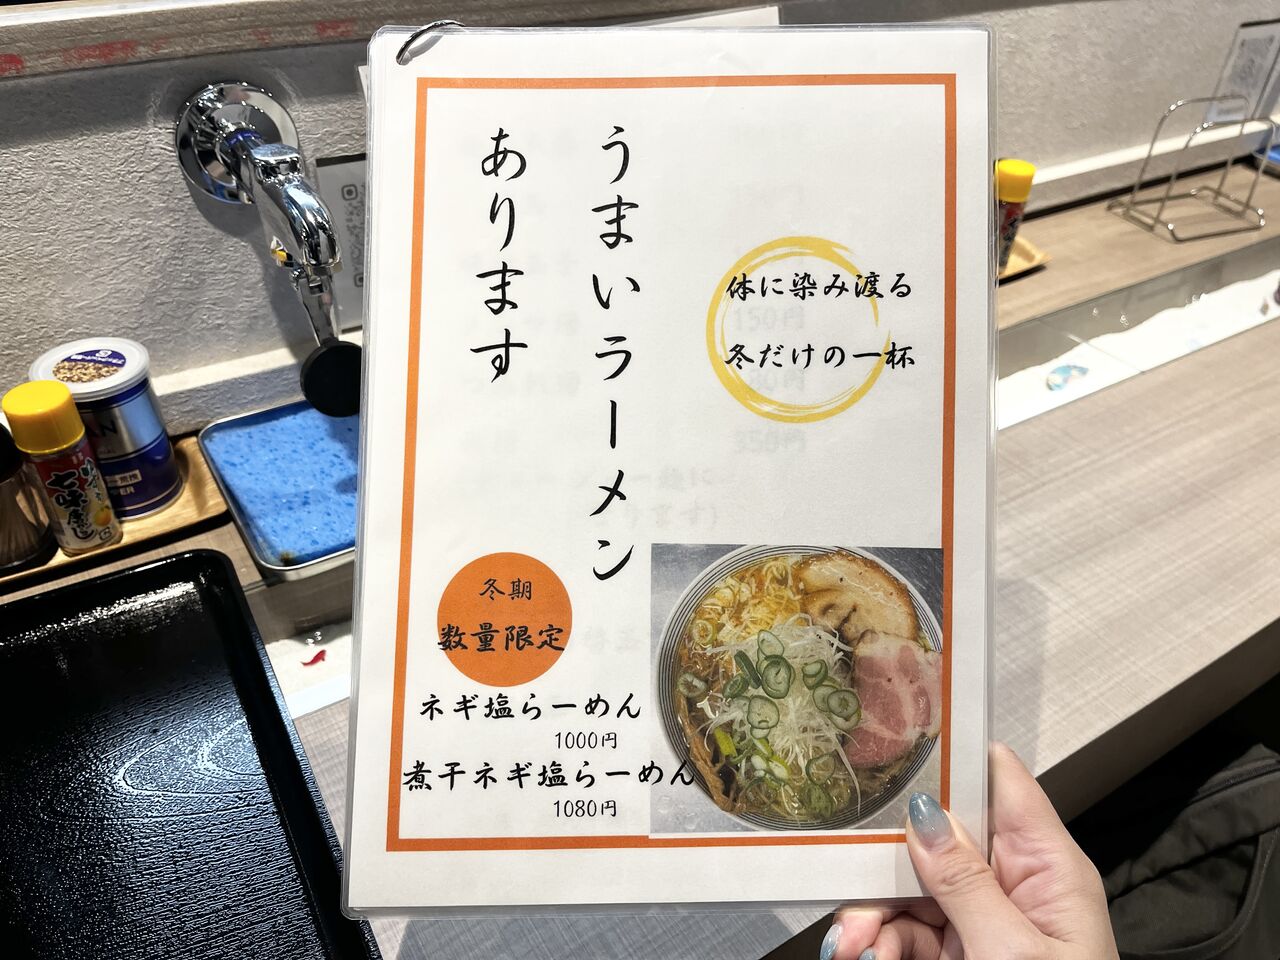 うまいラーメン
あります
体に染み渡る
冬だけの一杯
冬期
数量限定
ネギ塩らーめん
1000円
煮干ネギ塩らーめん
1080円
150円
350円
七味唐辛子